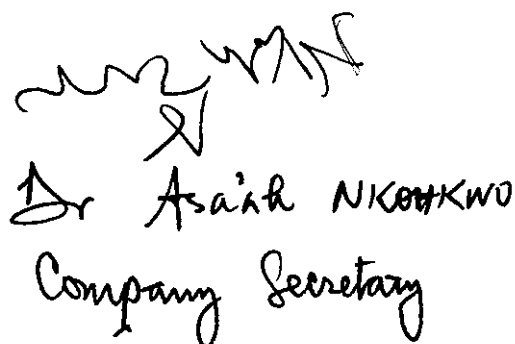 Dr Asa'ah NKOHKWO
Company Secretary